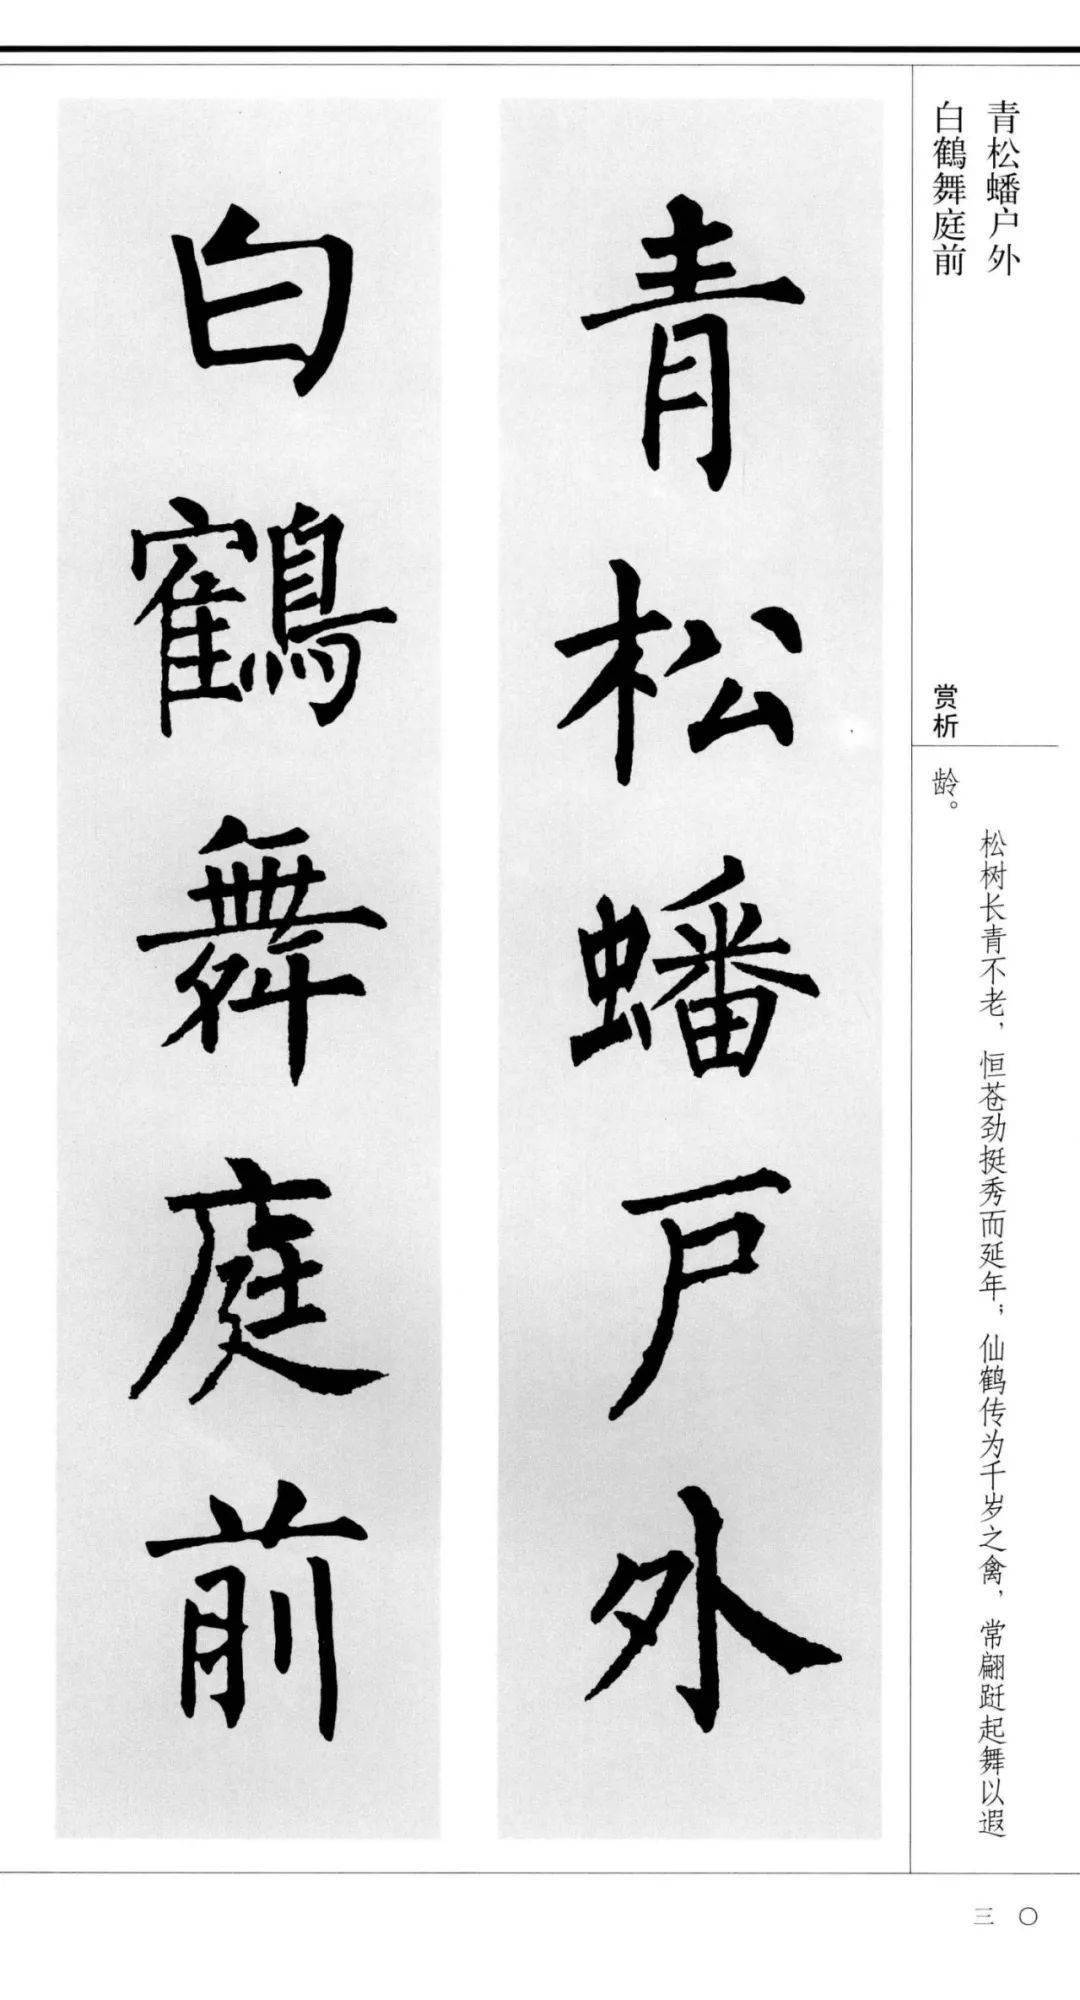 青松蟠户外
白鶴舞庭前
赏析
松树长青不老，恒苍劲挺秀而延年；仙鹤传为千岁之禽，常翩跹起舞以遐
龄。
青松蟠戸外
白鶴舞庭前
三〇